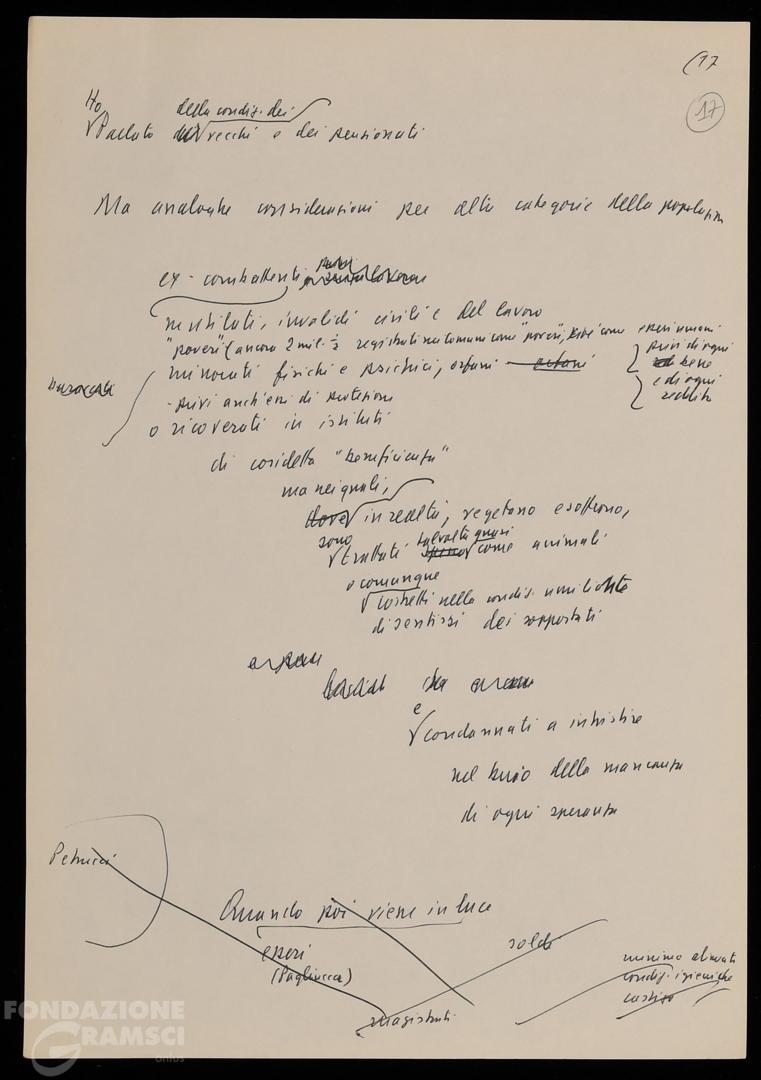 (17
17
Ho della condiz. dei
Parlato dei vecchi e dei pensionati
Ma analoghe considerazioni per altre categorie della popolazione
ex-combattenti
mutilati, invalidi civili e del lavoro
"poveri" (ancora 2 mil. registrati come "poveri", cioè come esseri umani
privi di ogni
bene
e di ogni
reddito
minorati fisici e psichici, orfani
- privi anch'essi di protezione
o ricoverati in istituti
di cosidetta "beneficienza"
ma nei quali,
dove in realtà, vegetano e soffrono,
sono talvolta quasi
trattati spesso come animali
o comunque
costretti nella condiz. umiliante
di sentirsi dei sopportati
e
condannati a intristire
nel buio della mancanza
di ogni speranza
Petrucci
Quando poi viene in luce
(Pagliuca)
soldi
magistrati
minimo alimenti
condiz. igieniche
FONDAZIONE
GRAMSCI
onlus